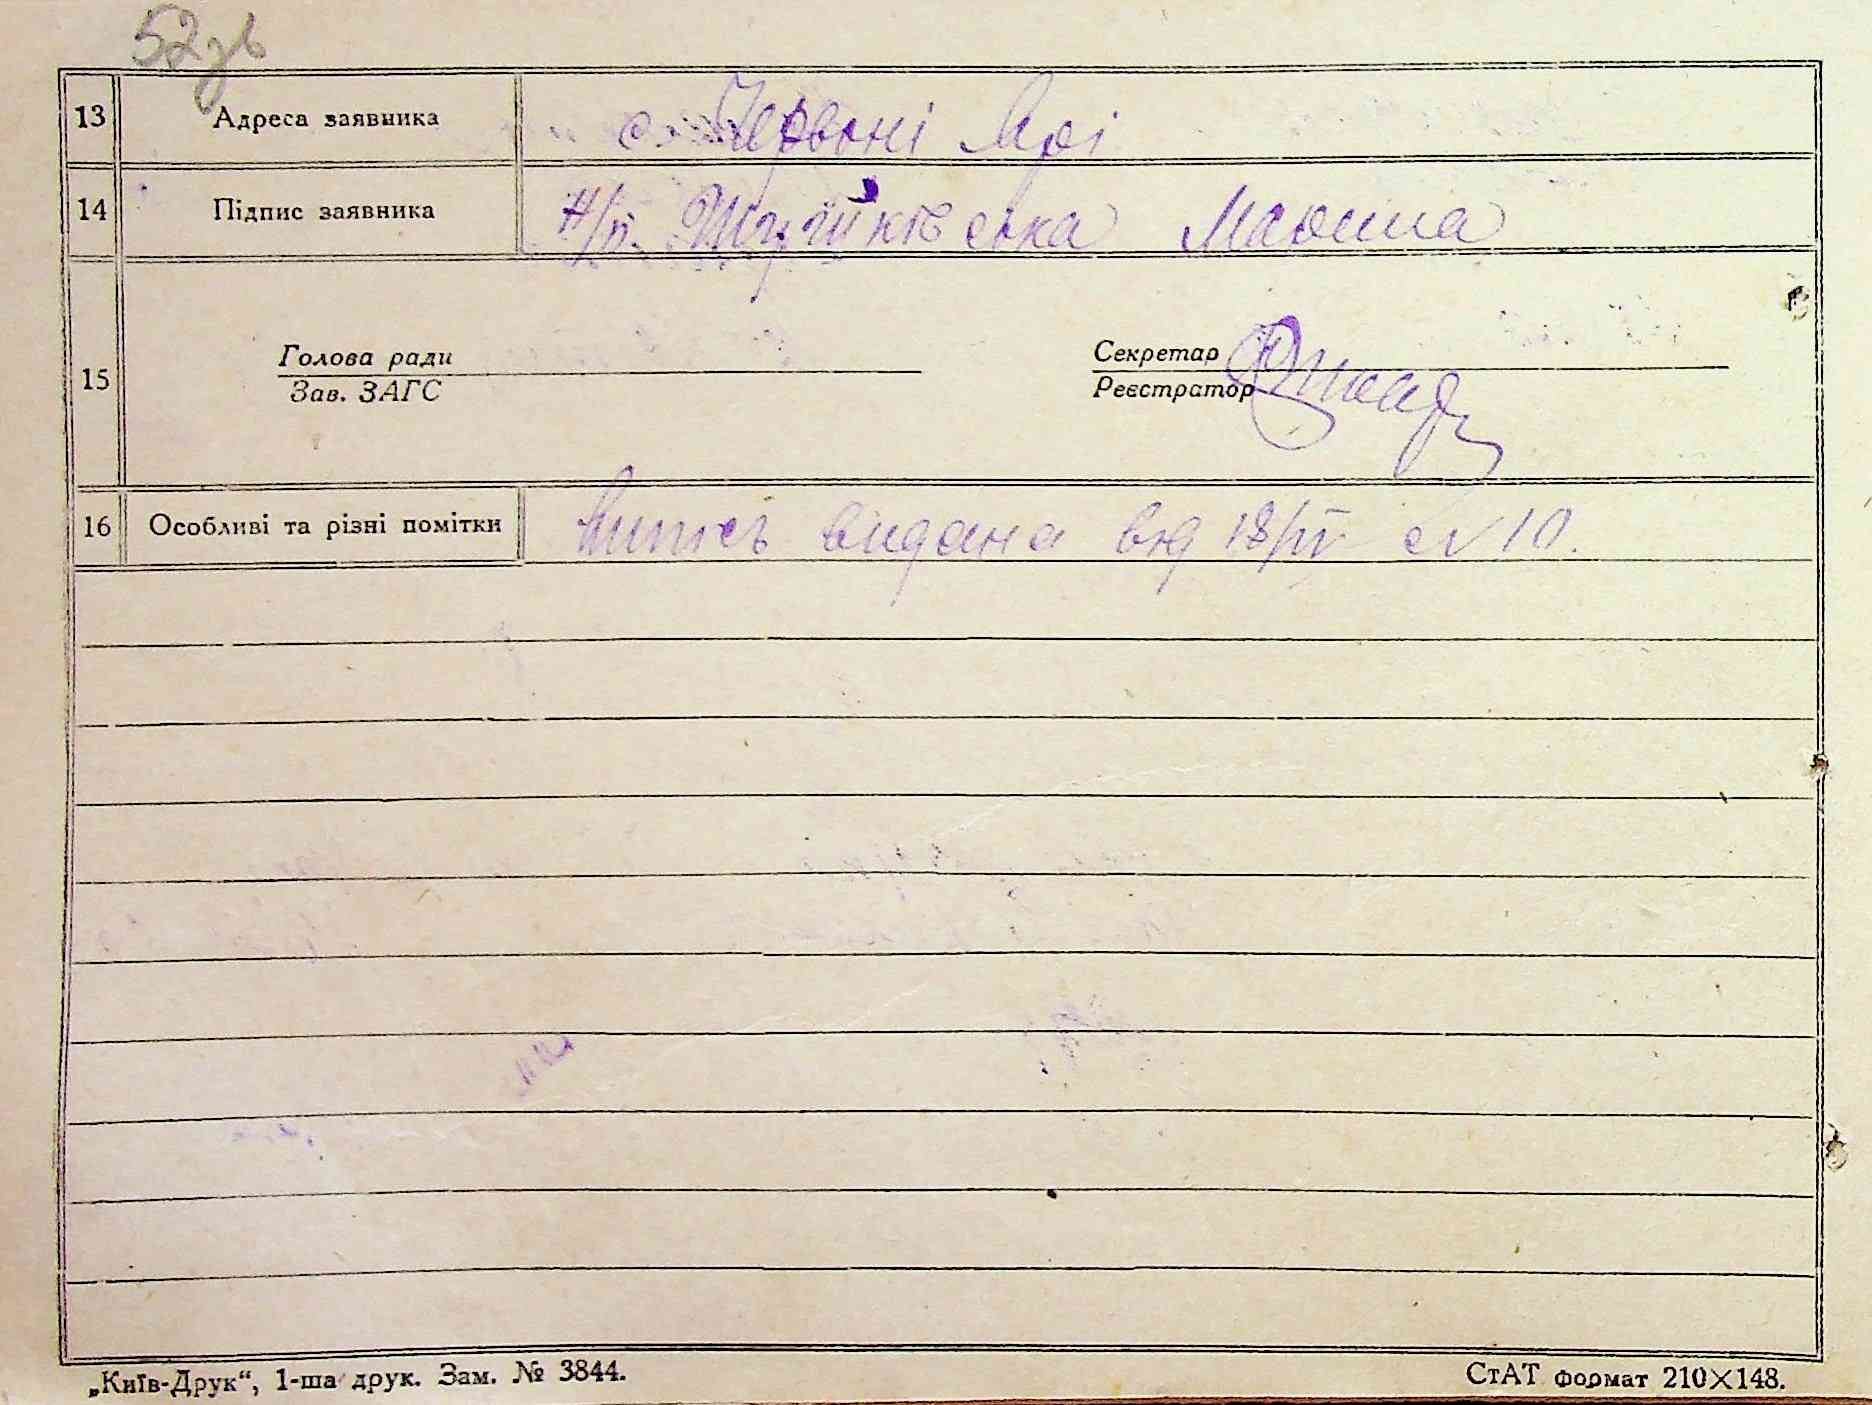 52зв
13 Адреса заявника с. Червоні
14 Підпис заявника н/п.
Голова ради Секретар
15
Зав. ЗАГС Реєстратор
16 Особливі та різні помітки Випись видана від 18/IV с№ 10.
„Київ-Друк“, 1-ша друк. Зам. № 3844. СтАТ формат 210×148.